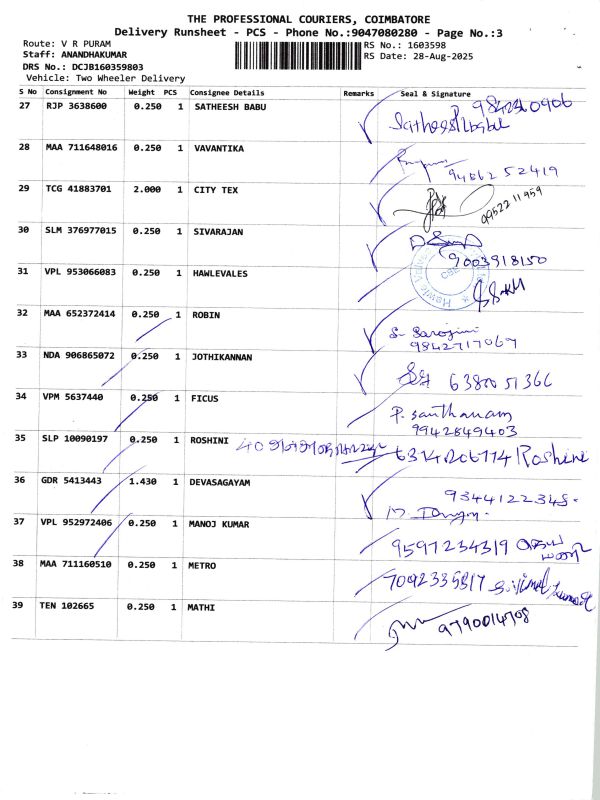 THE PROFESSIONAL COURIERS, COIMBATORE
Delivery Runsheet - PCS - Phone No.:9047080280 - Page No.:3
Route: V R PURAM
Staff: ANANDHAKUMAR
DRS No.: DCJB160359803
Vehicle: Two Wheeler Delivery
RS No.: 1603598
RS Date: 28-Aug-2025
S No Consignment No Weight PCS Consignee Details Remarks Seal & Signature
27 RJP 3638600 0.250 1 SATHEESH BABU
28 MAA 711648016 0.250 1 VAVANTIKA
29 TCG 41883701 2.000 1 CITY TEX 9952211959
30 SLM 376977015 0.250 1 SIVARAJAN 9003918150
31 VPL 953066083 0.250 1 HAWLEVALES
32 MAA 652372414 0.250 1 ROBIN S. Sarojini
9842717067
33 NDA 906865072 0.250 1 JOTHIKANNAN 6380051366
34 VPM 5637440 0.250 1 FICUS P. Santhanam
9942849403
35 SLP 10090197 0.250 1 ROSHINI Roshini
36 GDR 5413443 1.430 1 DEVASAGAYAM
37 VPL 952972406 0.250 1 MANOJ KUMAR 9597234319
38 MAA 711160510 0.250 1 METRO
39 TEN 102665 0.250 1 MATHI 9790014708